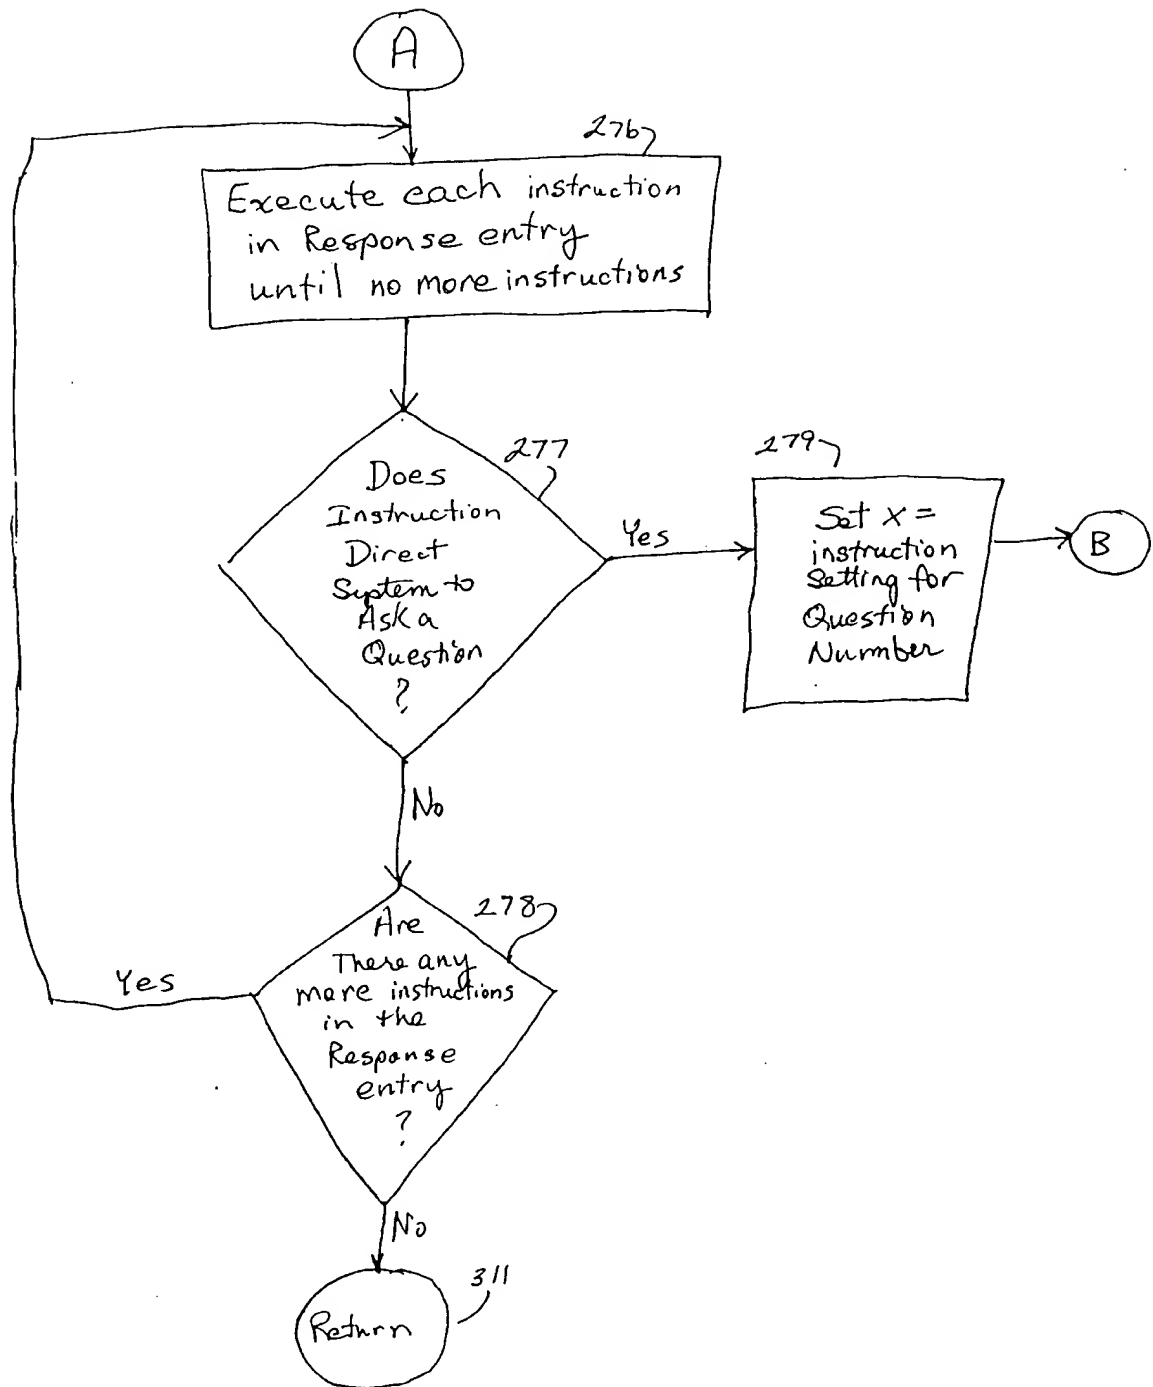 A
276
Execute each instruction
in Response entry
until no more instructions
277
Does
Instruction
Direct
System to
Ask a
Question
?
Yes
279
Set X =
instruction
Setting for
Question
Number
B
No
278
Are
There any
more instructions
in the
Response
entry
?
Yes
No
Return
311